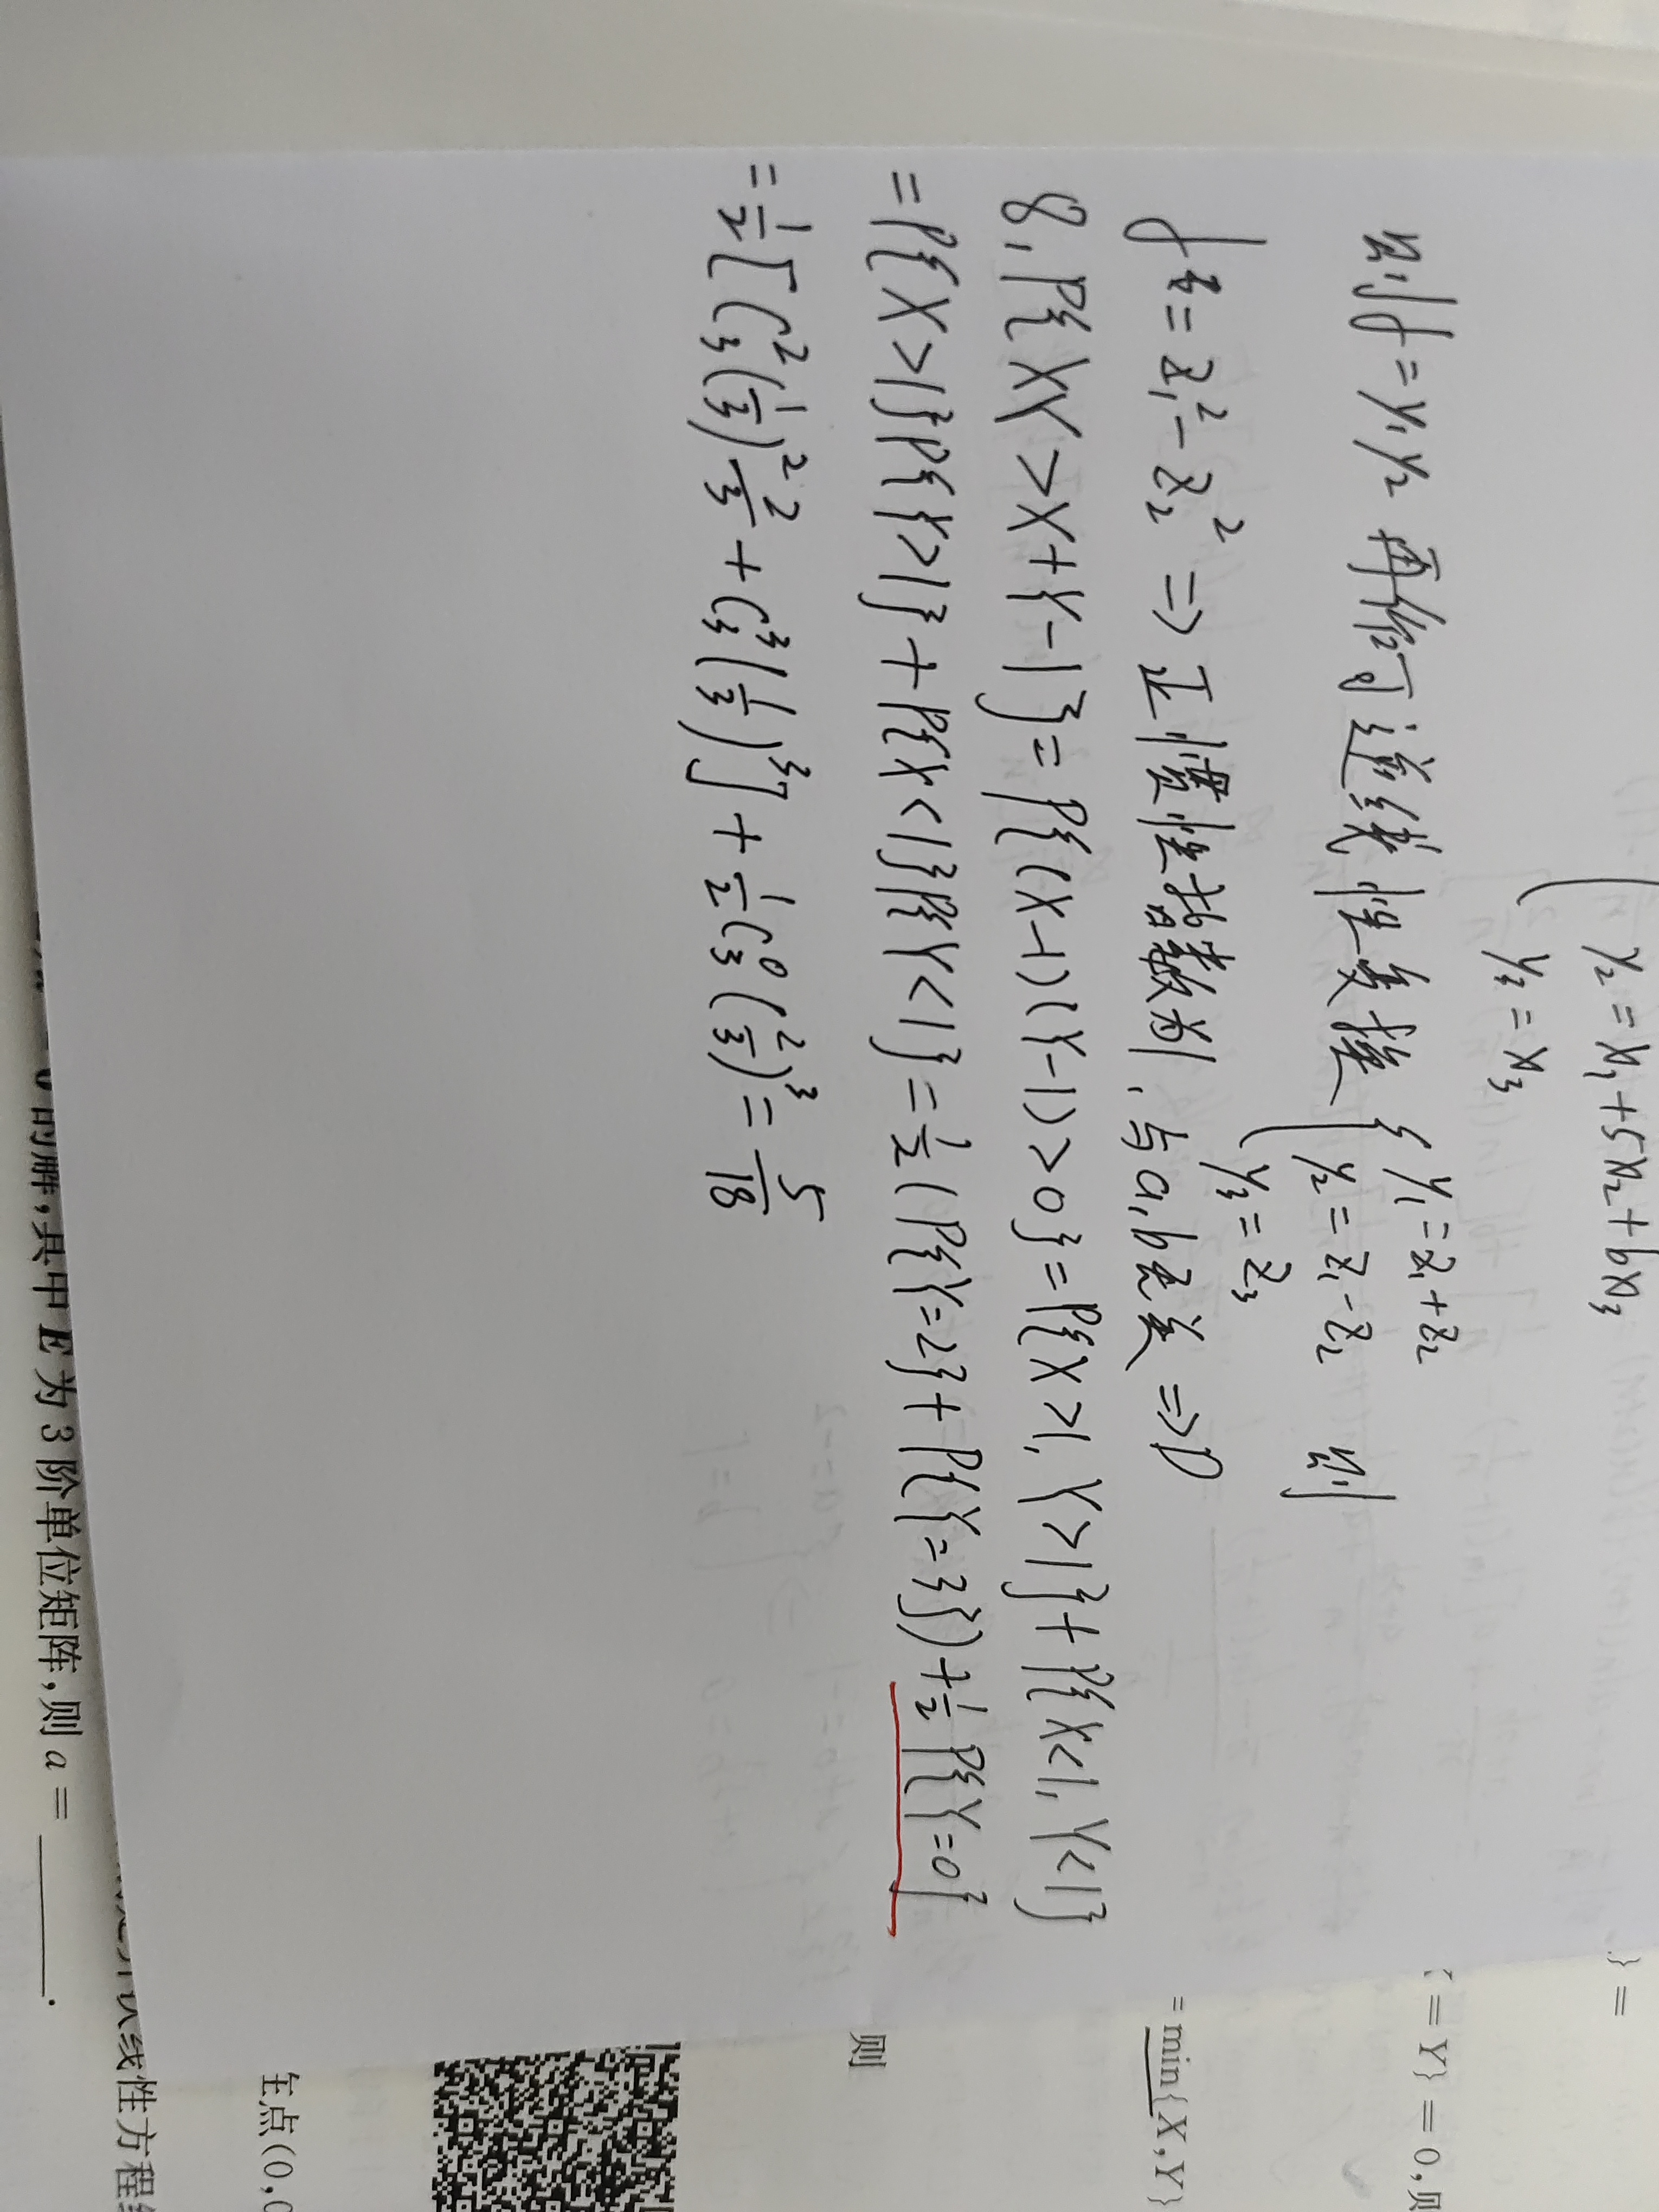 y₂ = x₁ + 5x₂ + bx₃
y₃ = x₃
则 f = y₁y₂ 再作可逆线性变换 { y₁ = z₁ + z₂
y₂ = z₁ - z₂ 则
y₃ = z₃
f = z₁² - z₂² ⇒ 正惯性指数为1, 与a,b无关 ⇒ D
8, P{XY > X + Y - 1} = P{(X-1)(Y-1) > 0} = P{X > 1, Y > 1} + P{X < 1, Y < 1}
= P{X > 1}P{Y > 1} + P{X < 1}P{Y < 1} = 1/2 (P{Y = 2} + P{Y = 3}) + 1/2 P{Y = 0}
= 1/2 [C₃²(1/3)² 2/3 + C₃³(1/3)³] + 1/2 C₃⁰(2/3)³ = 5/18
} =
= Y} = 0, 则
= min{X, Y}
则
的解,其中 E 为 3 阶单位矩阵,则 a = ______.
线性方程
点(0,0